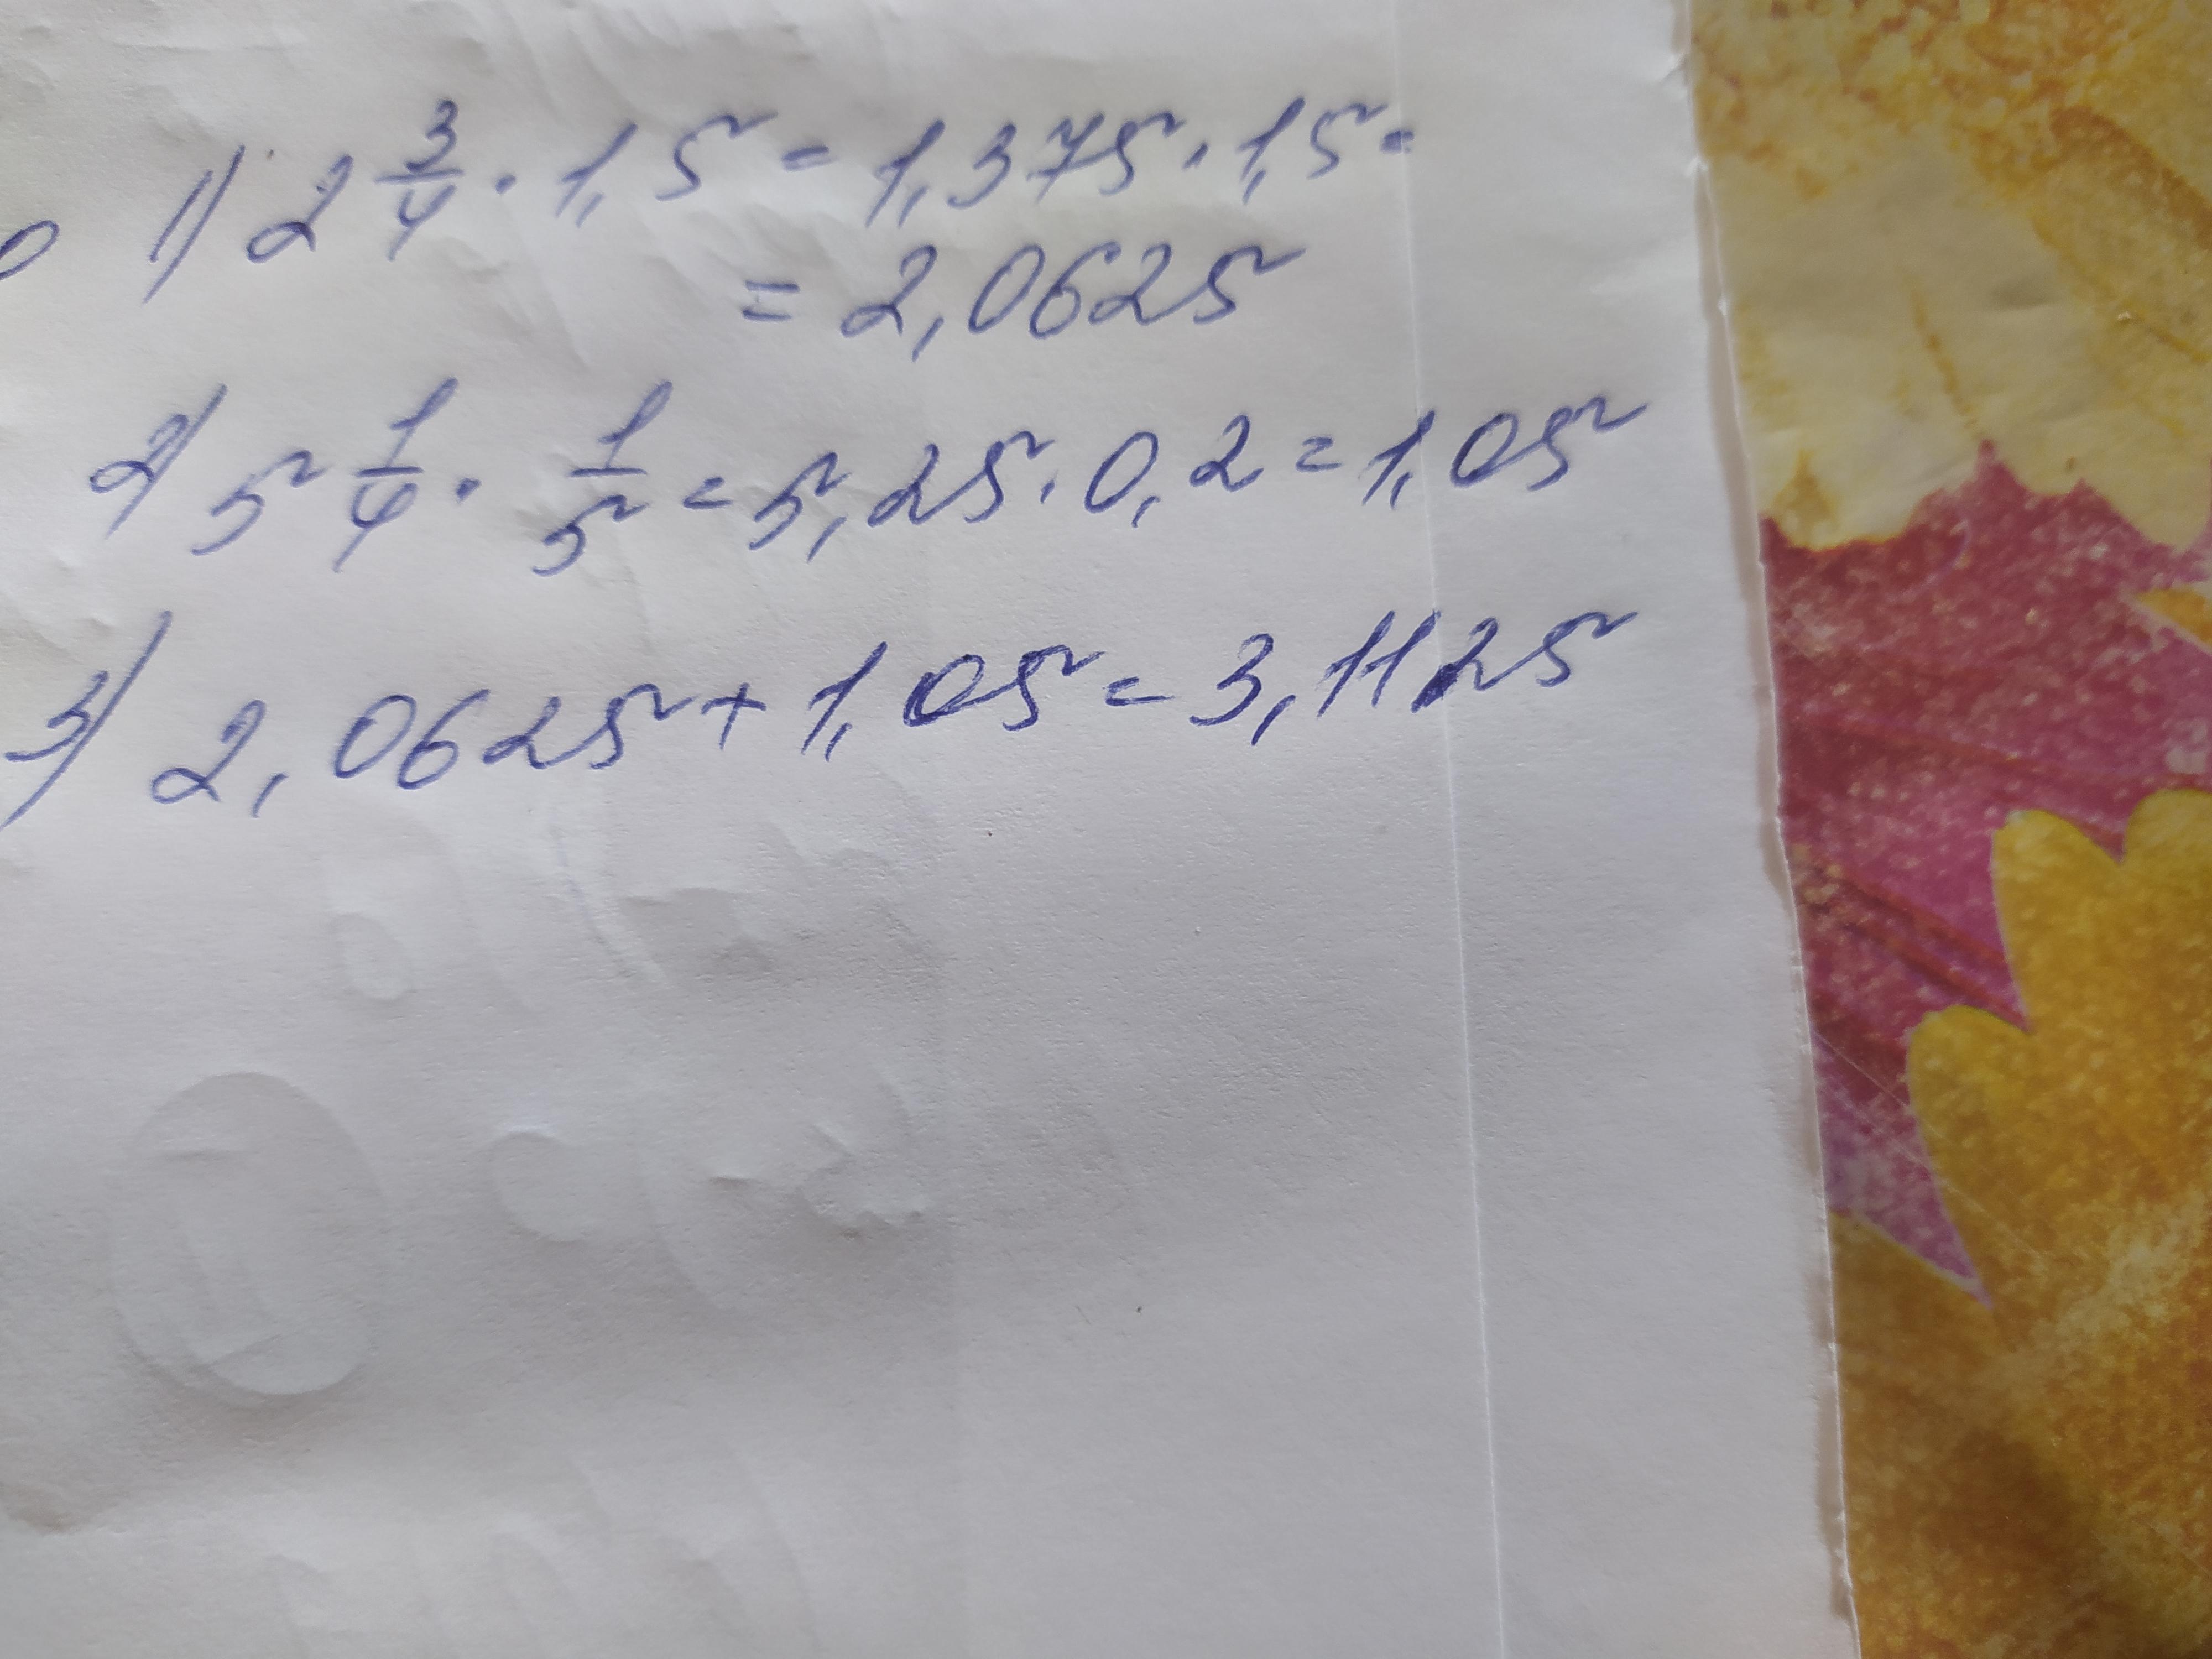 1) 2 3/4 · 1,5 = 1,375 · 1,5 =
= 2,0625
2) 5 1/4 · 1/5 = 5,25 · 0,2 = 1,05
3) 2,0625 + 1,05 = 3,1125